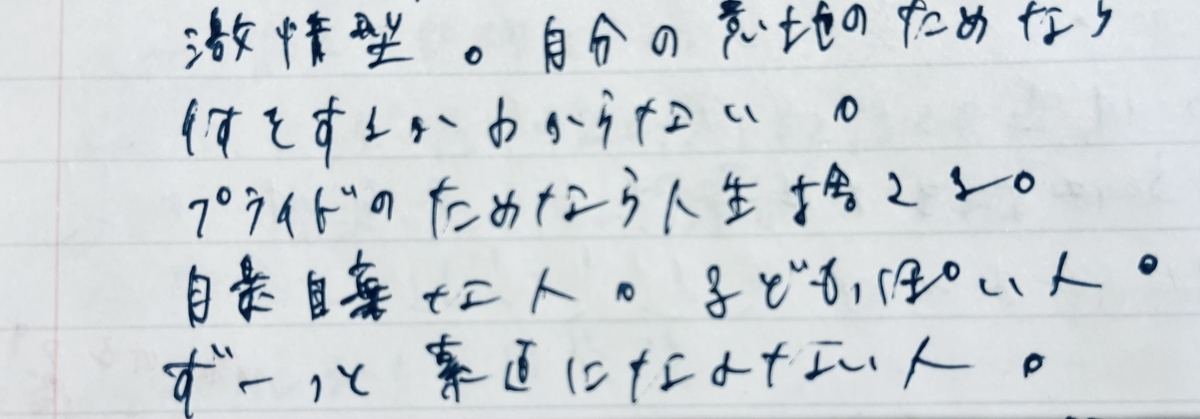 激情型。自分の意地のためなら
何をするかわからない。
プライドのためなら人生捨てる。
自暴自棄な人。子どもっぽい人。
ずーっと素直になれない人。